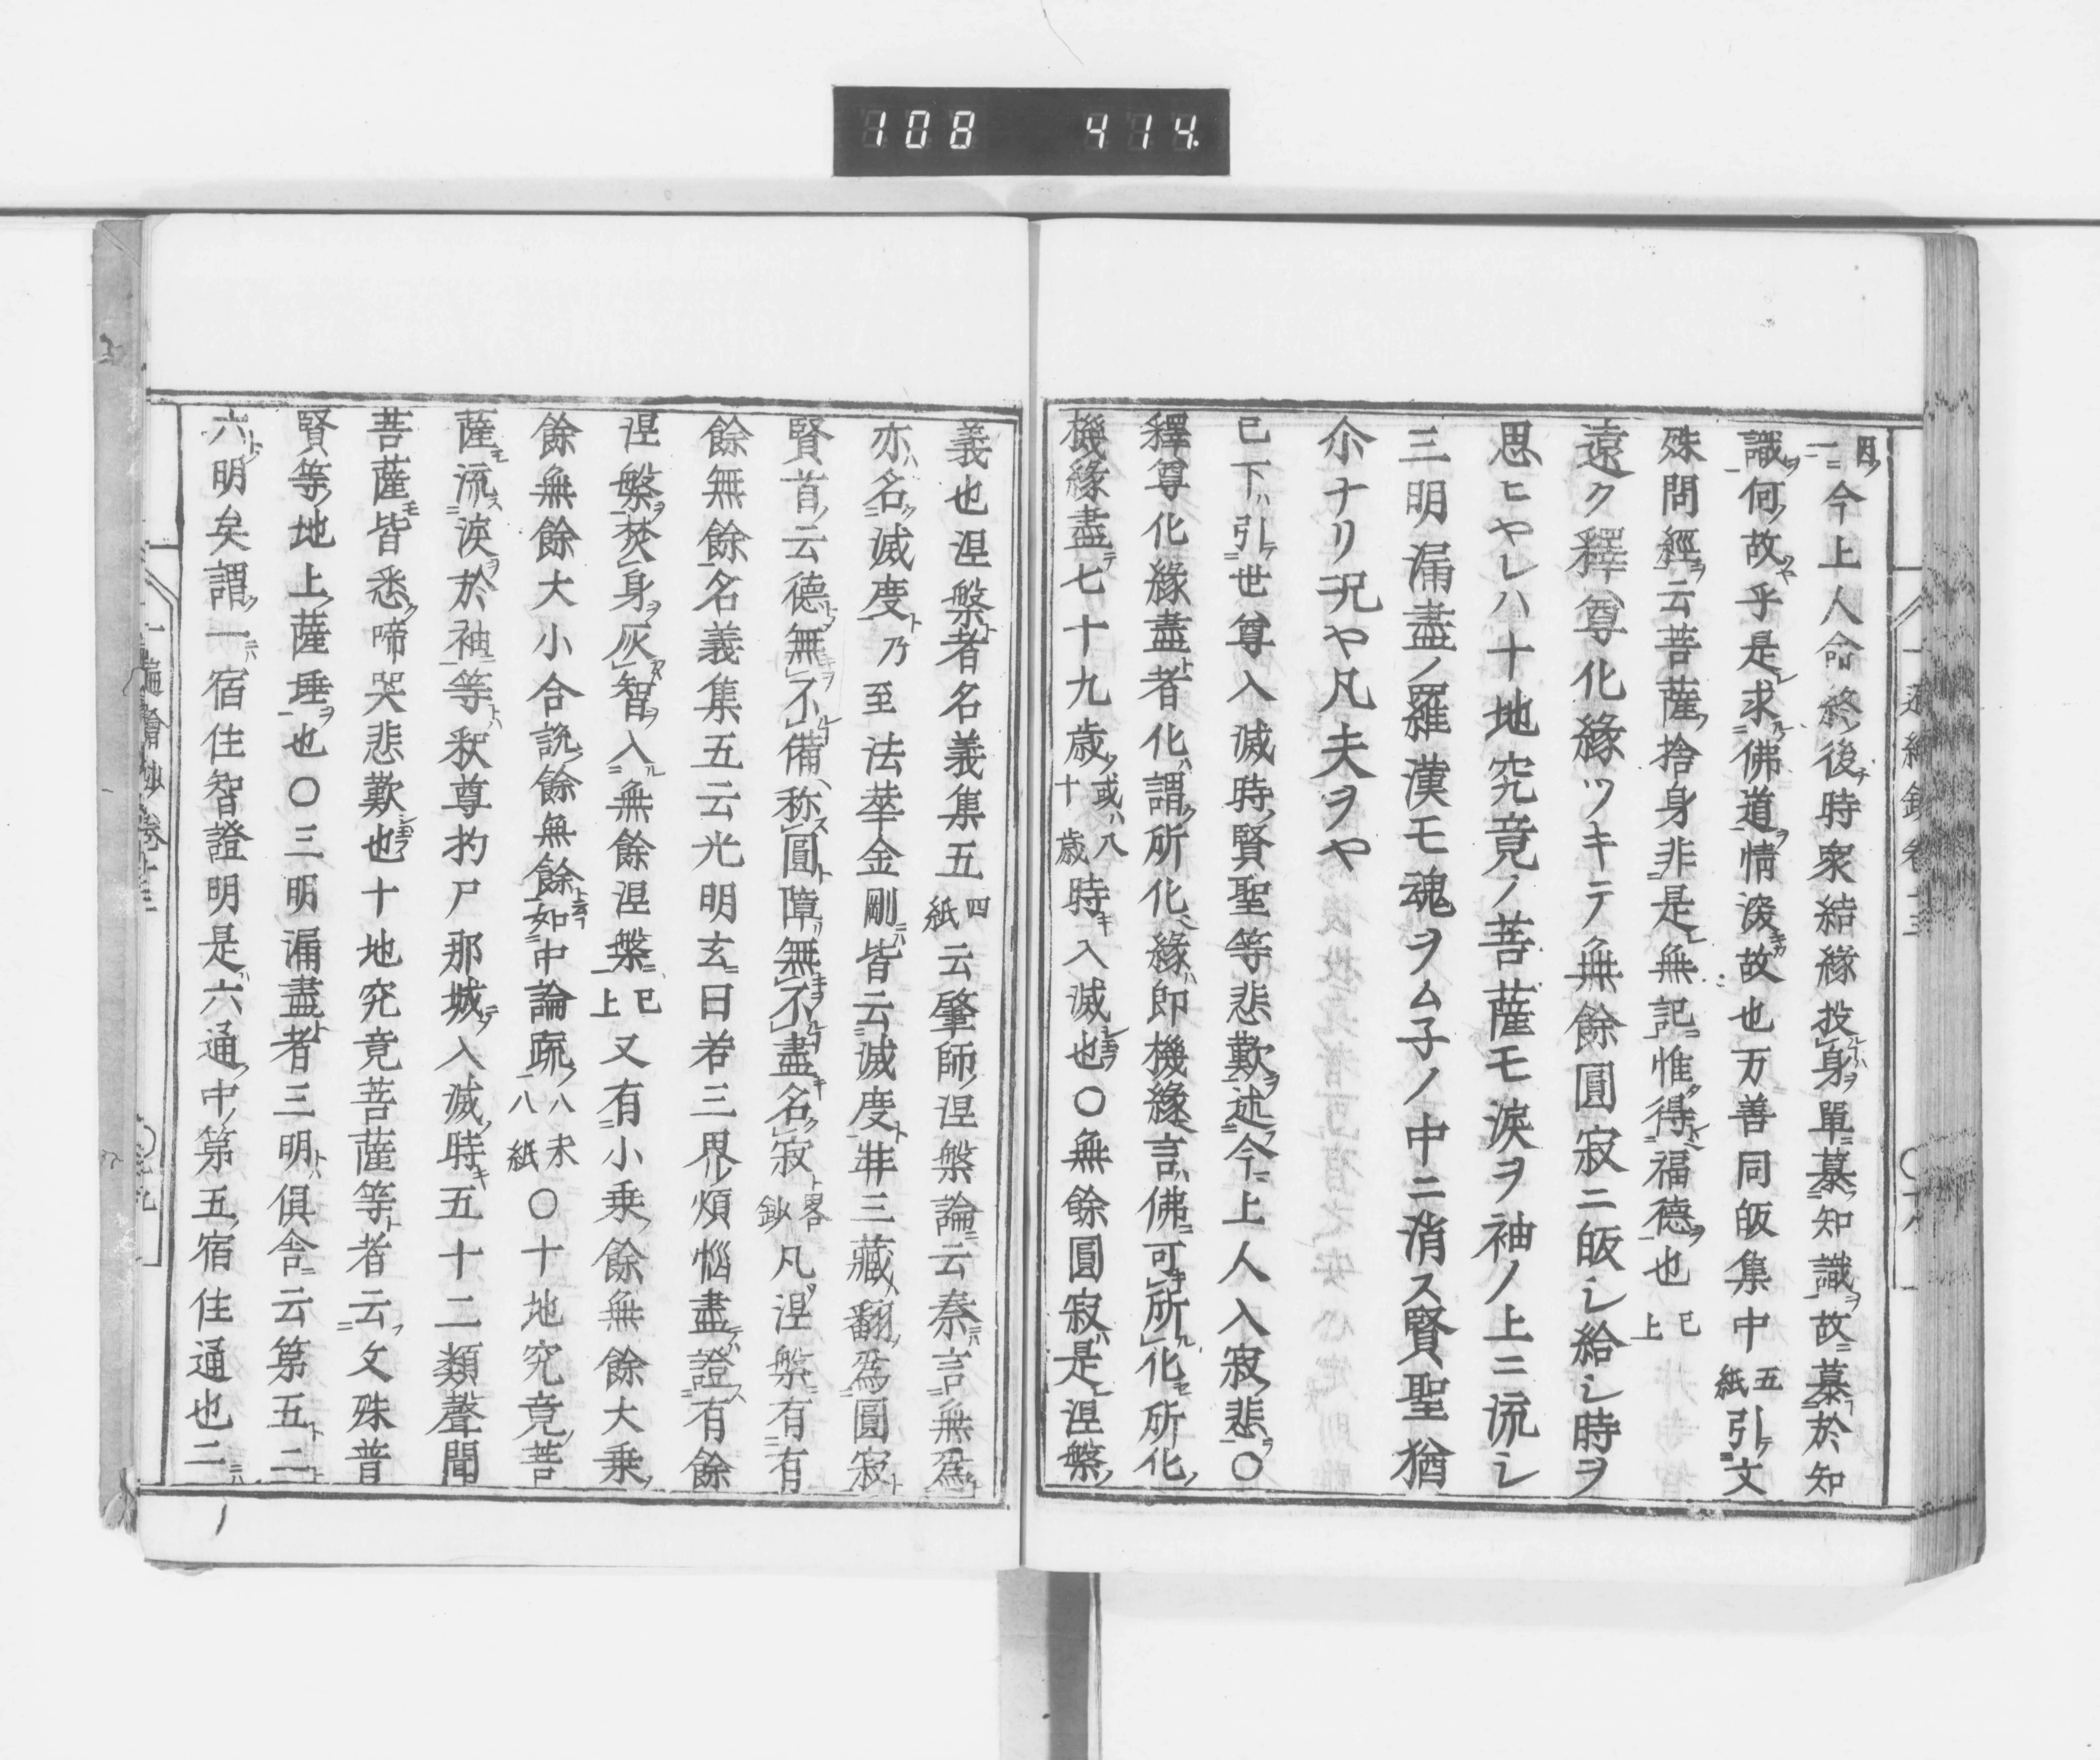 108 414.
今上人命終後時衆結縁投身單慕知識故慕於知
識何故乎是求佛道情深故也万善同皈集中五紙引文
殊問經云菩薩捨身非是無記惟得福德也已上
遠ク釋尊化縁ツキテ無餘圓寂ニ皈シ給シ時ヲ
思ヒヤレハ十地究竟ノ菩薩モ淚ヲ袖ノ上ニ流シ
三明漏盡ノ羅漢モ魂ヲムネノ中ニ消ス賢聖猶
尒ナリ况ヤ凡夫ヲヤ
已下引世尊入滅時賢聖等悲歎述今上人入寂悲〇
釋尊化縁盡者化謂所化縁即機縁言佛可所化所化
機縁盡七十九歳或八十歳時入滅也〇無餘圓寂是涅槃
義也涅槃者名義集五四紙云肇師涅槃論云秦言無爲
亦名滅度乃至法華金剛皆云滅度弉三藏翻爲圓寂
賢首云德無不備称圓障無不盡名寂畧鈔凡涅槃有有
餘無餘名義集五云光明玄曰若三界煩惱盡證有餘
涅槃焚身灰智入無餘涅槃已上又有小乘餘無餘大乘
餘無餘大小合說餘無餘如中論疏八末八紙〇十地究竟菩
薩流淚於袖等釈尊於尸那城入滅時五十二類聲聞
菩薩皆悉啼哭悲歎也十地究竟菩薩等者云文殊普
賢等地上薩埵也〇三明漏盡者三明俱舎云第五二
六明矣謂一宿住智證明是六通中第五宿住通也二